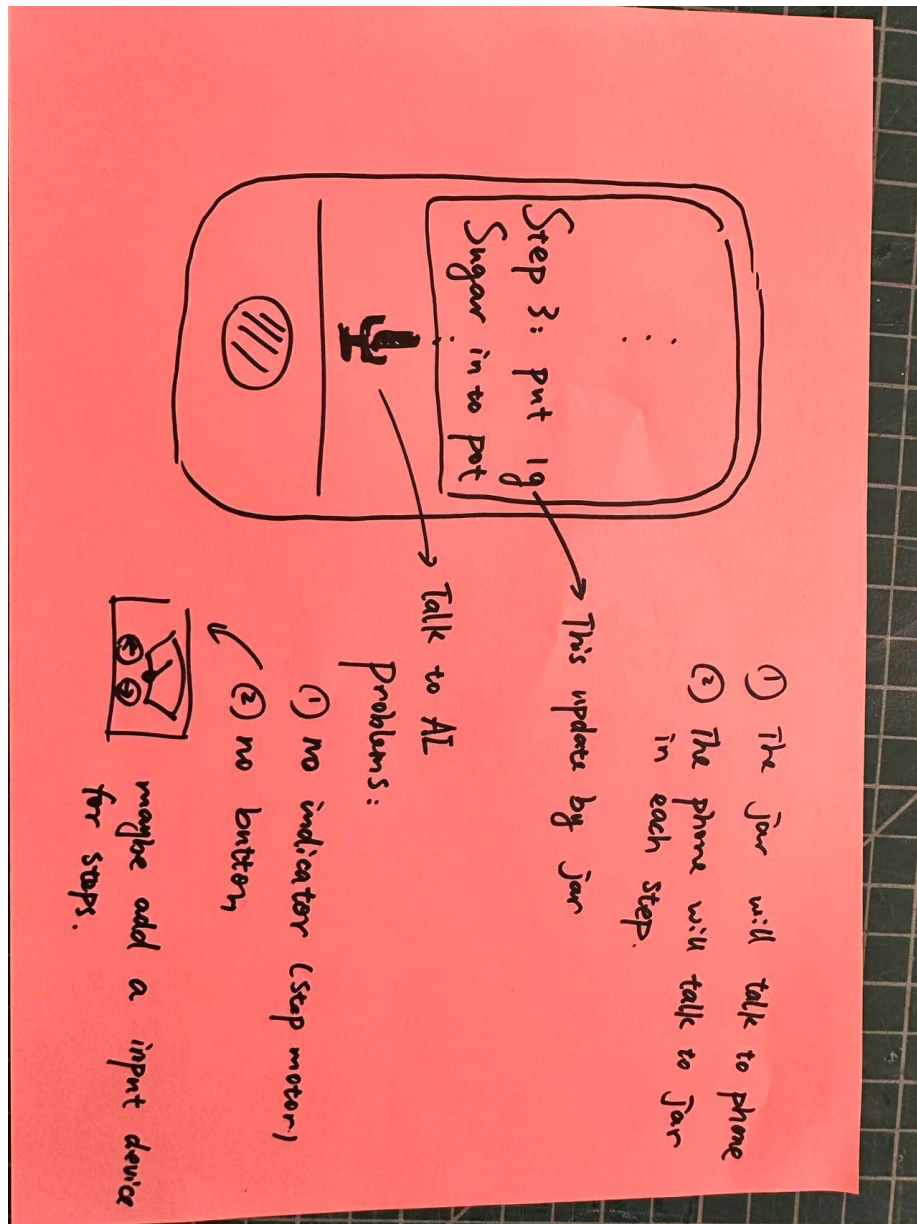 ...
Step 3: put 1g
Sugar in to pot
① The jar will talk to phone
② The phone will talk to jar
in each step.
This update by jar
Talk to AI
problems:
① no indicator (step motor)
② no button
maybe add a input device
for steps.